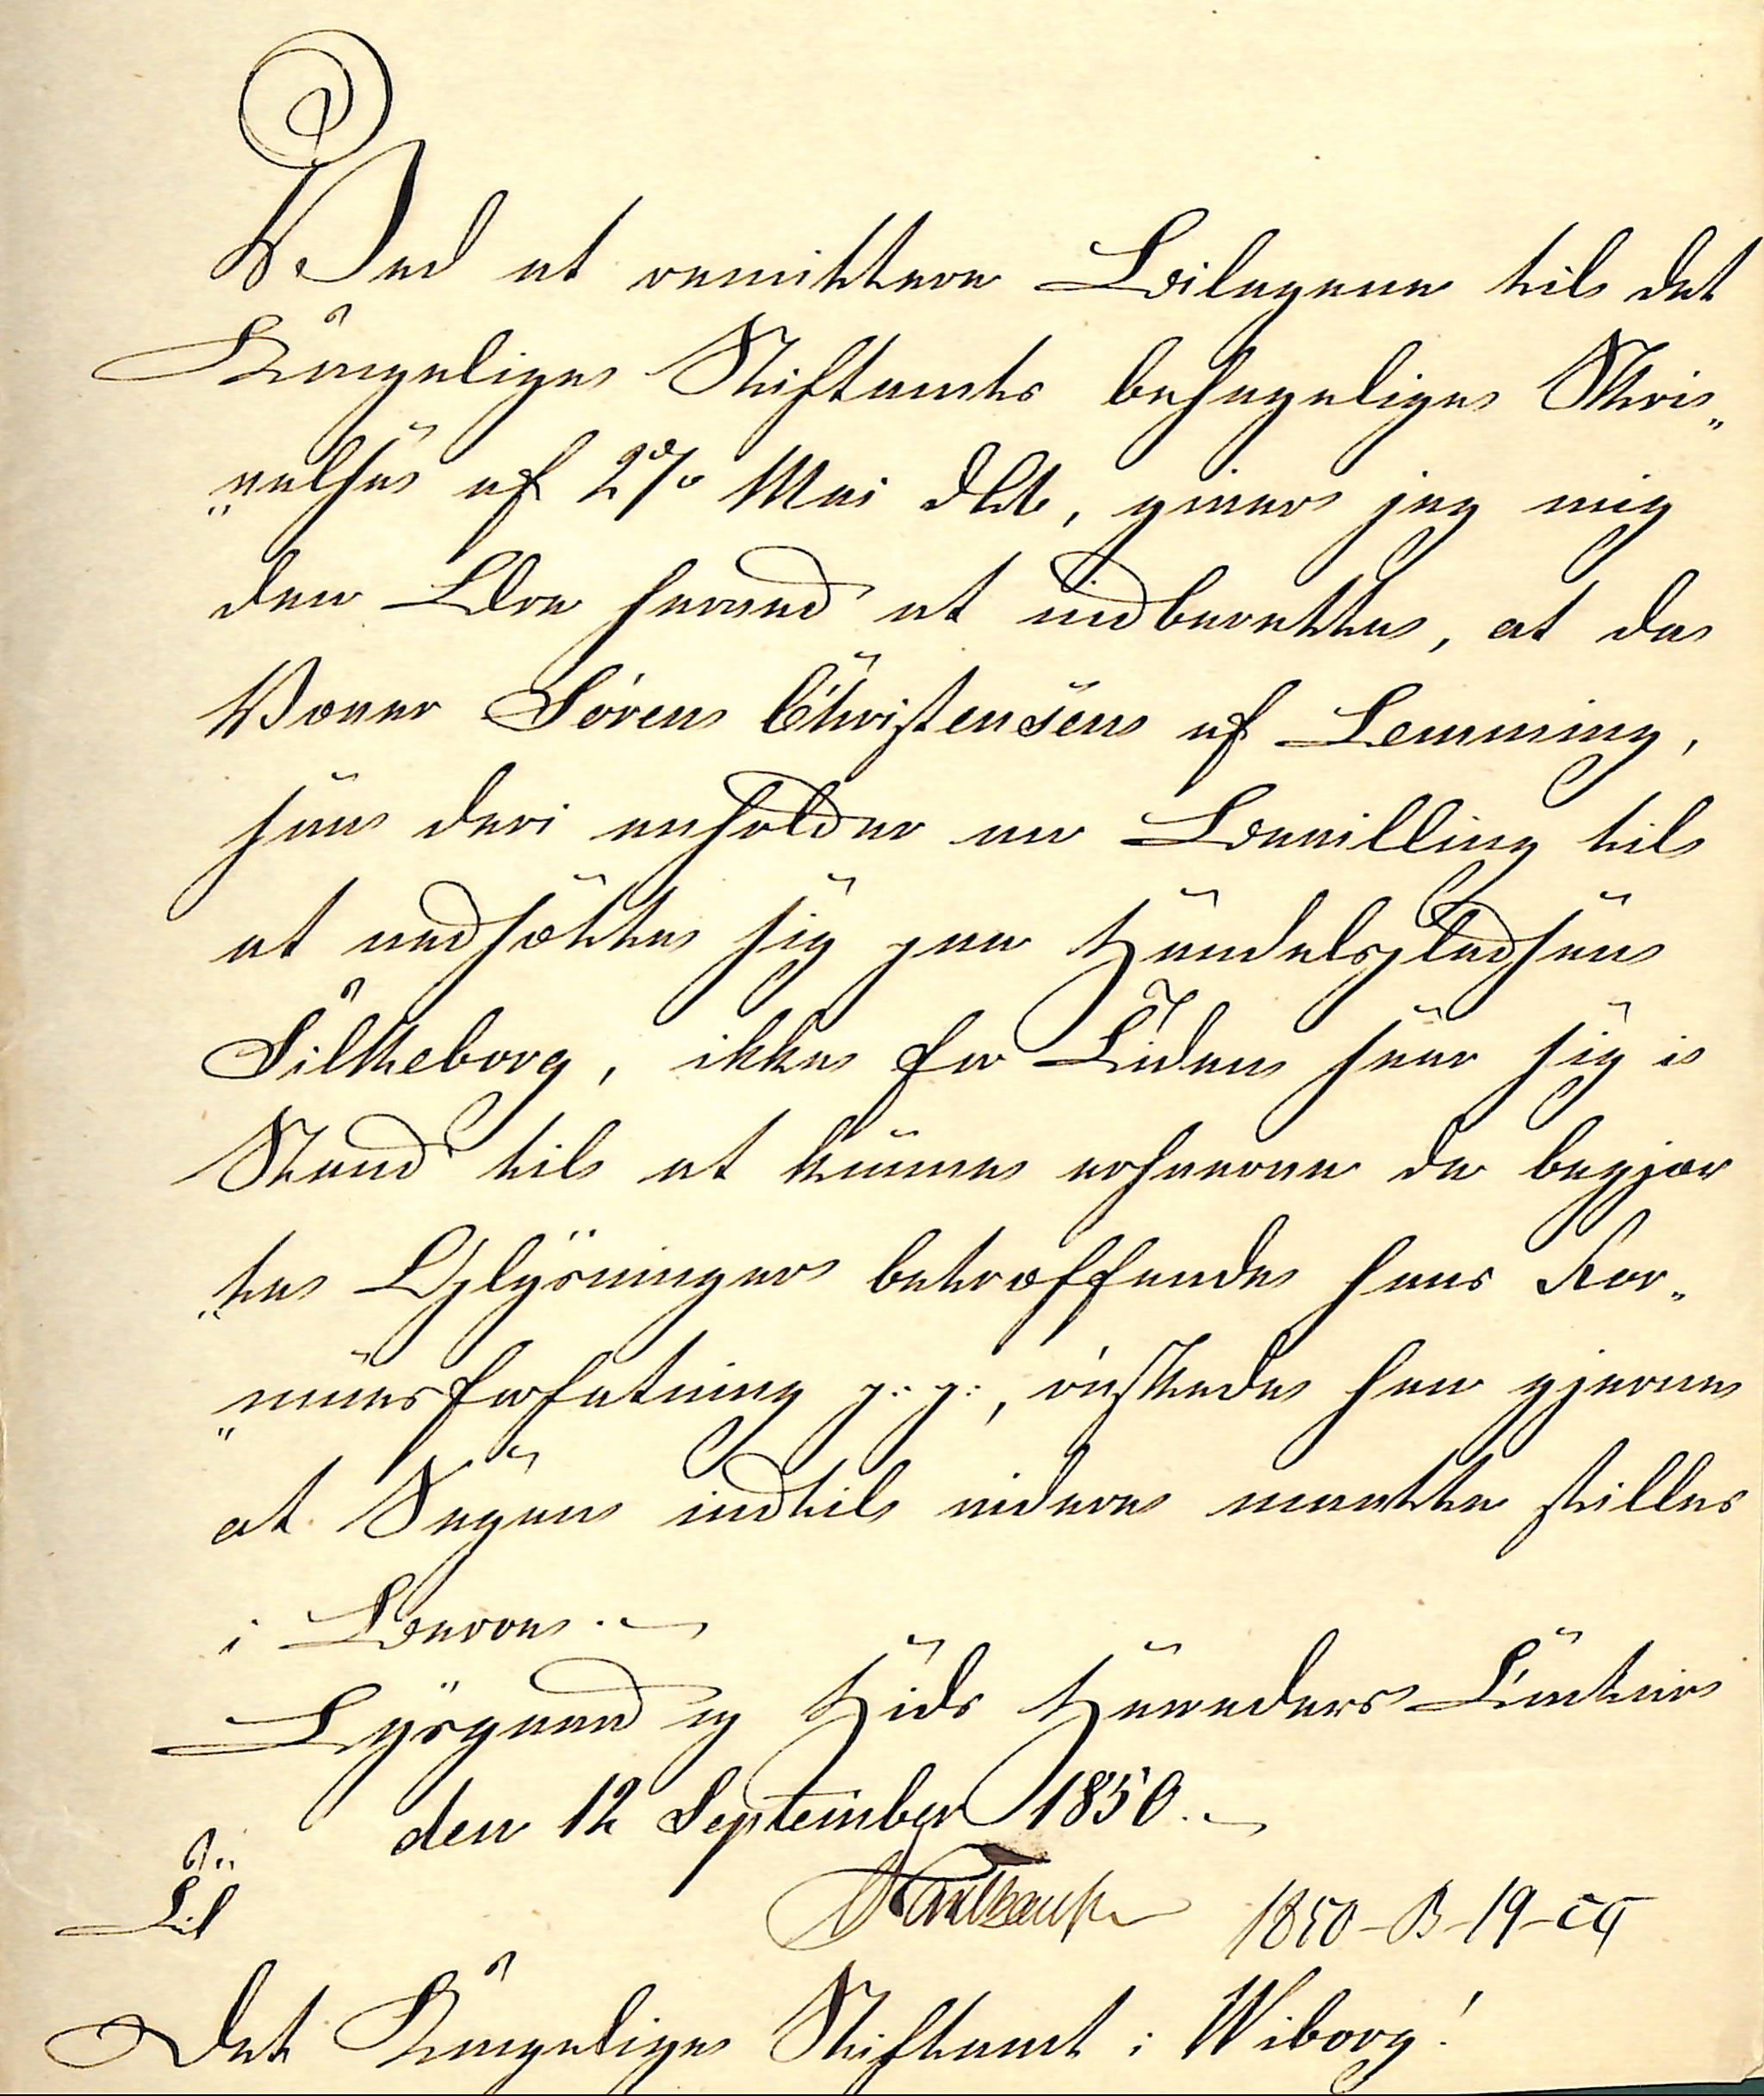 Ved at remittere Bilagene til det
Kongelige Stiftamts behagelige Skri„
„velse af 27/5 Mai dette, giver jeg mig
den Ære herved at indberette, at da
Væver Sören Christensen af Lemming,
som deri anholder om Bevilling til
at nedsætte sig paa Handelspladsen
Silkeborg, ikke for Tiden seer sig i
Stand til at kunne erhverve de begjær
„te Oplysninger betræffende hans For„
„muesforfatning p: p:, önskede han gjerne
at Sagen indtil videre maatte stilles
i Beroe. —
Lysgaard og Hids Herreders Contoir
den 12 September 1850. —
Til
1850–B–19–
Det Kongelige Stiftamt i Wiborg!